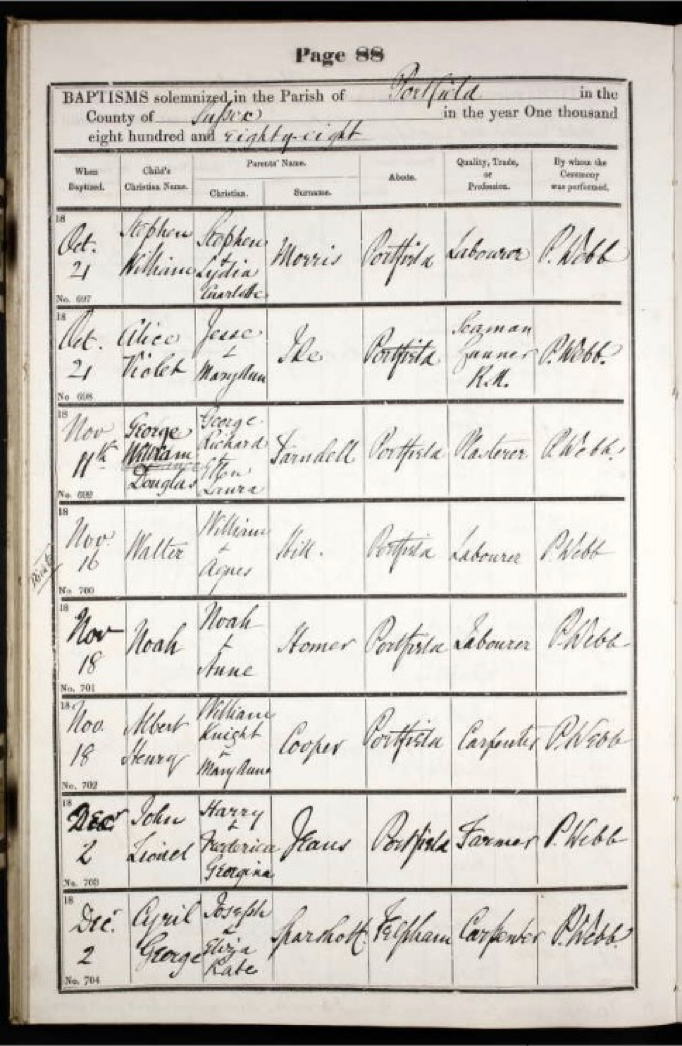 Page 88
BAPTISMS solemnized in the Parish of Portfield in the
County of Sussex in the year One thousand
eight hundred and eighty-eight
When Baptized. Child's Christian Name. Parents' Name. Christian. Surname. Abode. Quality, Trade, or Profession. By whom the Ceremony was performed.
18
Oct. 21
Stephen William
Stephen + Lydia Charlotte
Morris
Portfield
Labourer
P. Webb
No. 697
18
Oct. 21
Alice Violet
Jesse + Mary Ann
Ide
Portfield
Seaman Gunner R.N.
P. Webb.
No 698
18
Nov 11th
George William Douglas
George Richard Ellen Laura
Farndell
Portfield
Plasterer
P. Webb.
No. 699
18
Nov. 16
Walter
William + Agnes
Hill.
Portfield
Labourer
P. Webb
No 700
18
Nov 18
Noah
Noah + Anne
Homer
Portfield
Labourer
P. Webb
No. 701
18
Nov. 18
Albert Henry
William Knight + Mary Anne
Cooper
Portfield
Carpenter
P. Webb
No. 702
18
Decr 2
John Lionel
Harry + Frederica Georgina
Jeans
Portfield
Farmer
P. Webb
No. 703
18
Decr. 2
Cyril George
Joseph + Eliza Kate
Sparshott.
Felpham
Carpenter
P. Webb.
No. 704